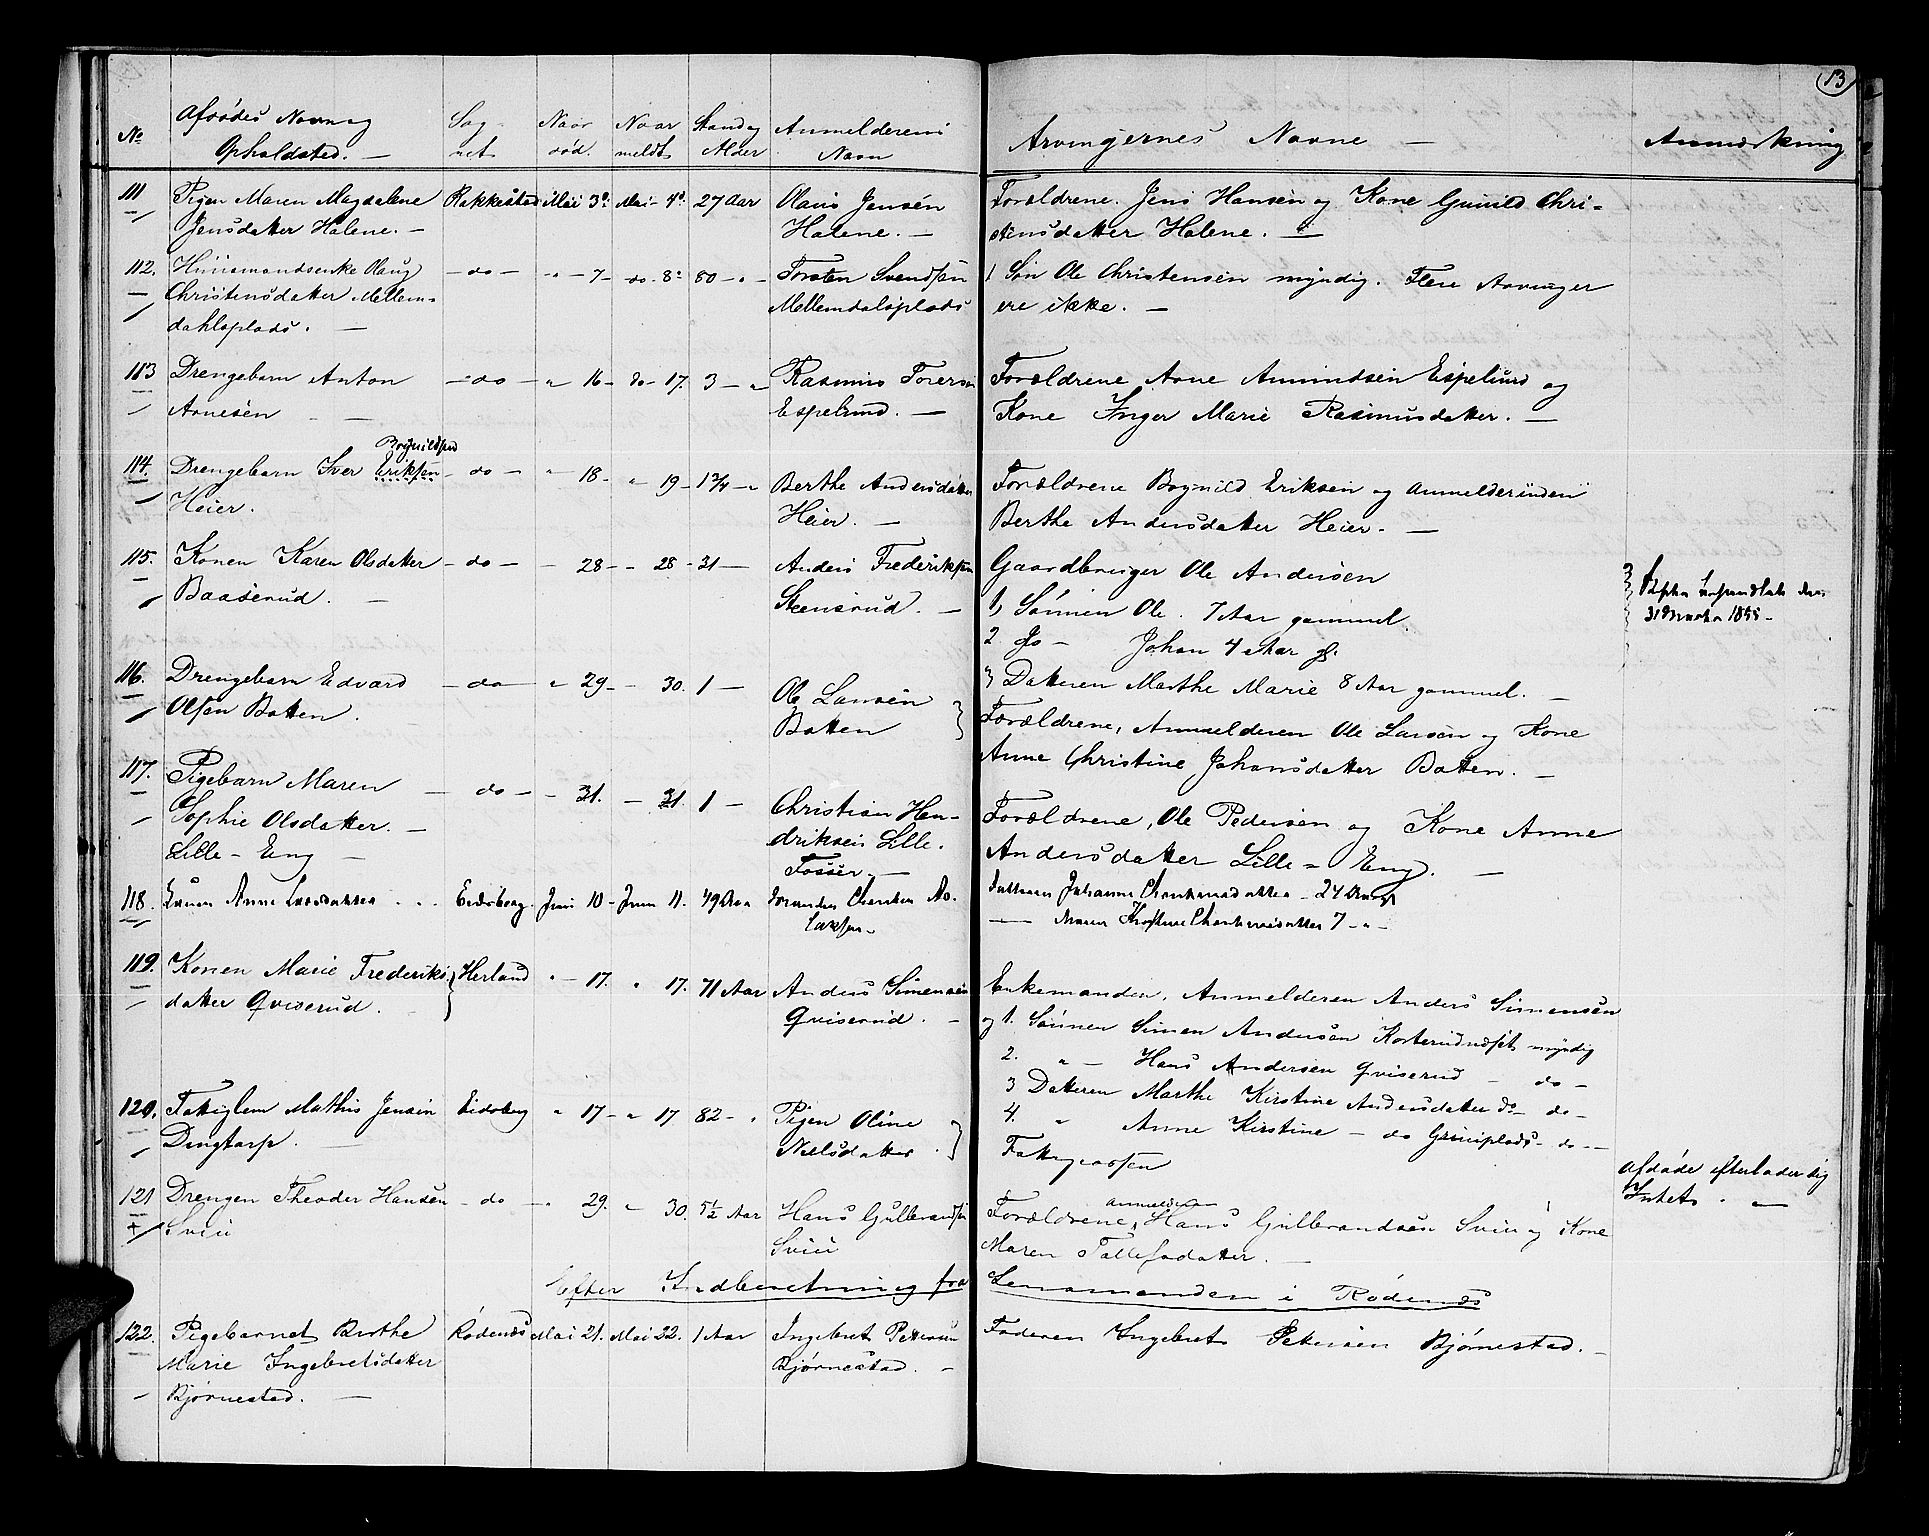 53
No
Afdødes Navn og Opholdsted. —
Sognet
Naar død.
Naar meldt
Stand og Alder
Anmelderens Navn
Arvingernes Navne —
Anmærkning
111 Pigen Maren Magdalene Rakkestad Mai 3d Mai 4d 27 Aar Olaus Jensen Forældrene. Jens Hansen og Kone Gunild Chri-
Jensdatter Halene. — Halene. — stensdatter Halene. —
112. Olaug — do — " — 7 — do. 8d 80 — " — Torsten Svendsen 1 Søn Ole Christensen myndig. Flere Arvinger
Christensdatter Mellem- Mellemdalsplads ere ikke. —
dahlsplads. —
113 Drengebarn Anton — do — " 16 — do — 17. 3 — " Rasmus Torersen Forældrene Arne Amundsen Espelund og
Arnesen — Espelund. — Kone Inger Marie Rasmusdatter. —
Bognildsen
114. Drengebarn Iver Eriksen — do — " 18 — " 19 — 1 3/4 — " Berthe Andersdatter Forældrene Bognild Eriksen og Anmelderinden
Heier. Heier. — Berthe Andersdatter Heier. —
115. Konen Karen Olsdatter — do — — 28 — — 28 — 31 — Anders Frederiksen Gaardbruger Ole Andersen
Baaserud. — Stensrud. — 1, Sønnen Ole. 7 Aar gammel 31 Marts 1855 —
2. Do — Johan 4 Aar gl.
3 Datteren Marthe Marie 8 Aar gammel. —
116. Drengebarn Edvard — do — " 29 — — 30. 1 — Ole Larsen Forældrene, Anmelderen Ole Larsen og Kone
Olsen Botten. Botten Anne Christine Johansdatter Botten. —
117. Pigebarn Maren — do — — 31. — 31. 1 — Christian Hen- Forældrene, Ole Pedersen og Kone Anne
Sophie Olsdatter. — driksen Lille. Andersdatter Lille = Eng. —
Lille = Eng — Fosser. —
118. Anne Larsdatter Eidsberg Juni 10 — Juni 11. 49 Aar Datteren Johanne 24 Aar gl
— Maren 7 — " —
119. Konen Marie Frederiks- Herland " — 17. " 17. 71 Aar Anders Simensen Enkemanden, Anmelderen Anders Simensen
datter Qviserud. Qviserud. — og 1. Sønnen Simen Andersen myndig
2. " — Hans Andersen Qviserud — do —
3 Datteren Marthe Kirstine Andersdatter do — do —
4. " Anne Kirstine — do — do —
120. Fattiglem Mathis Jensen Eidsberg " 17 — " 17. 82 — " Pigen Oline Fattigcassen
Dingtorp. — Nielsdatter. Afdøde efterlader sig
Intet. —
121 Drengen Theodor Hansen — do — — 29. — 30. 5 1/2 Aar Hans Gulbrandsen Forældrene, Anmelderen Hans Gulbrandsen Sviu og Kone
Sviu Sviu Maren Tollefsdatter. —
Efter Indberetning fra Lensmanden i Rødenæs
122. Pigebarnet Berthe Rødenæs Mai 21. Mai 22. 1 Aar Ingebret Pettersen Faderen Ingebret Petersen Bjørnestad. —
Marie Ingebretsdatter Bjørnestad. —
Bjørnestad. —